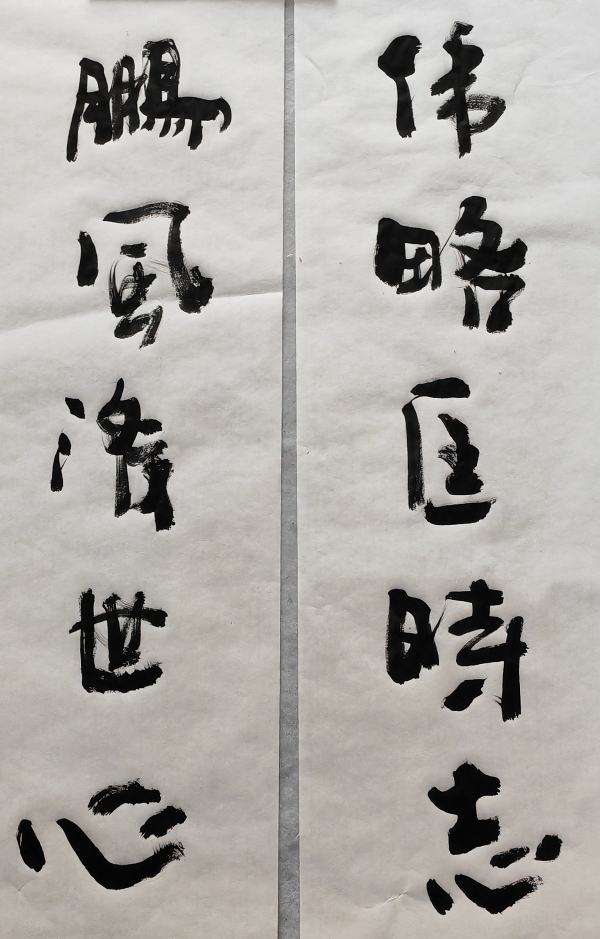 伟略匡時志
鵬風濟世心